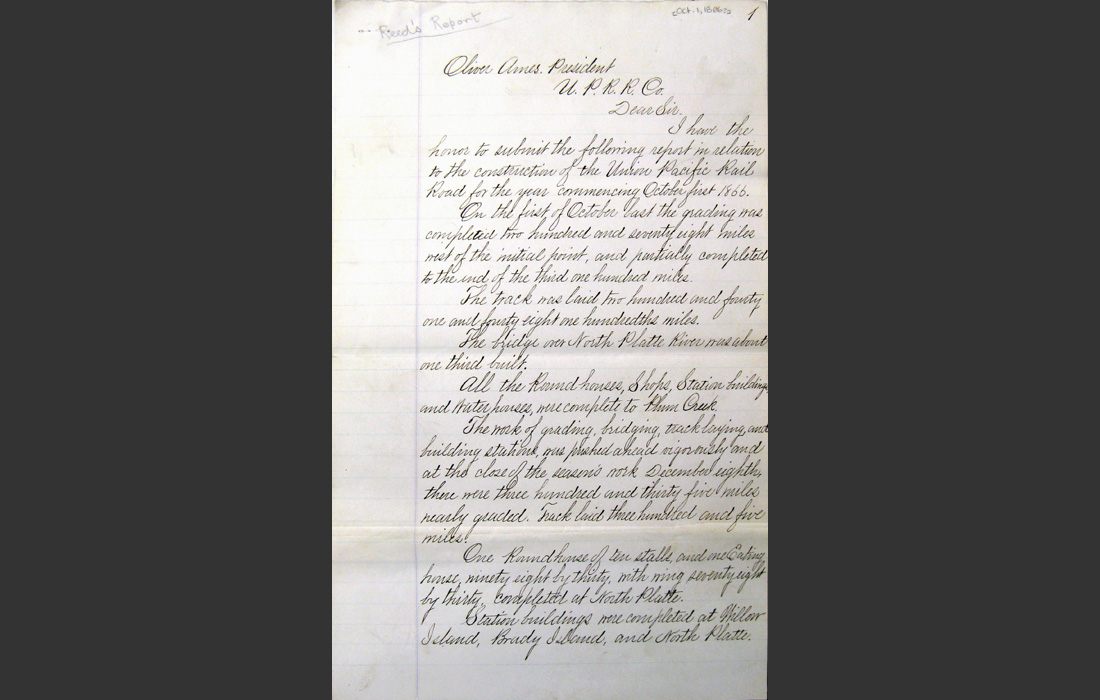 Reed's Report
Oct. 1, 1866
1
Oliver Ames. President
U. P. R. R. Co.
Dear Sir.
I have the
honor to submit the following report in relation
to the construction of the Union Pacific Rail
Road for the year commencing October first 1866.
On the first of October last the grading was
completed two hundred and seventy eight miles
west of the initial point, and partially completed
to the end of the third one hundred miles.
The track was laid two hundred and fourty
one and fourty eight one hundredths miles.
The bridge over North Platte River was about
one third built.
All the Round houses, Shops, Station buildings
and Water houses, were complete to Plum Creek.
The work of grading, bridging, track laying, and
building stations, was pushed ahead vigorously and
at the close of the season's work December eighth,
there were three hundred and thirty five miles
nearly graded. Track laid three hundred and five
miles.
One Roundhouse of ten stalls, and one Eating
house, ninety eight by thirty, with wing seventy eight
by thirty, completed at North Platte.
Station buildings were completed at Willow
Island, Brady Island, and North Platte.